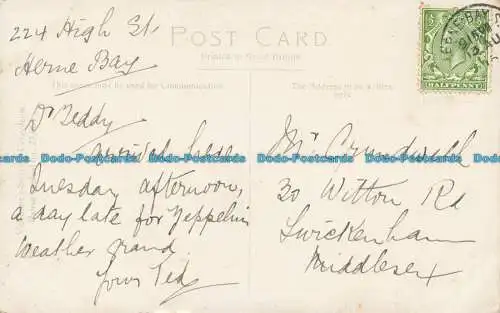 224 High St.
Herne Bay
POST CARD
Printed in Great Britain
This space may be used for Communication
The Address to be written here
HERNE BAY
HALFPENNY
Dr Teddy
arrived here
Tuesday afternoon,
a day late for Zeppelin
Weather grand
Yours Ted
Mr Grundwell
30 Witton Rd
Twickenham
Middlesex
Dodo-Postcards Dodo-Postcards Dodo-Postcards Dodo-Postcards Dodo-Postcards